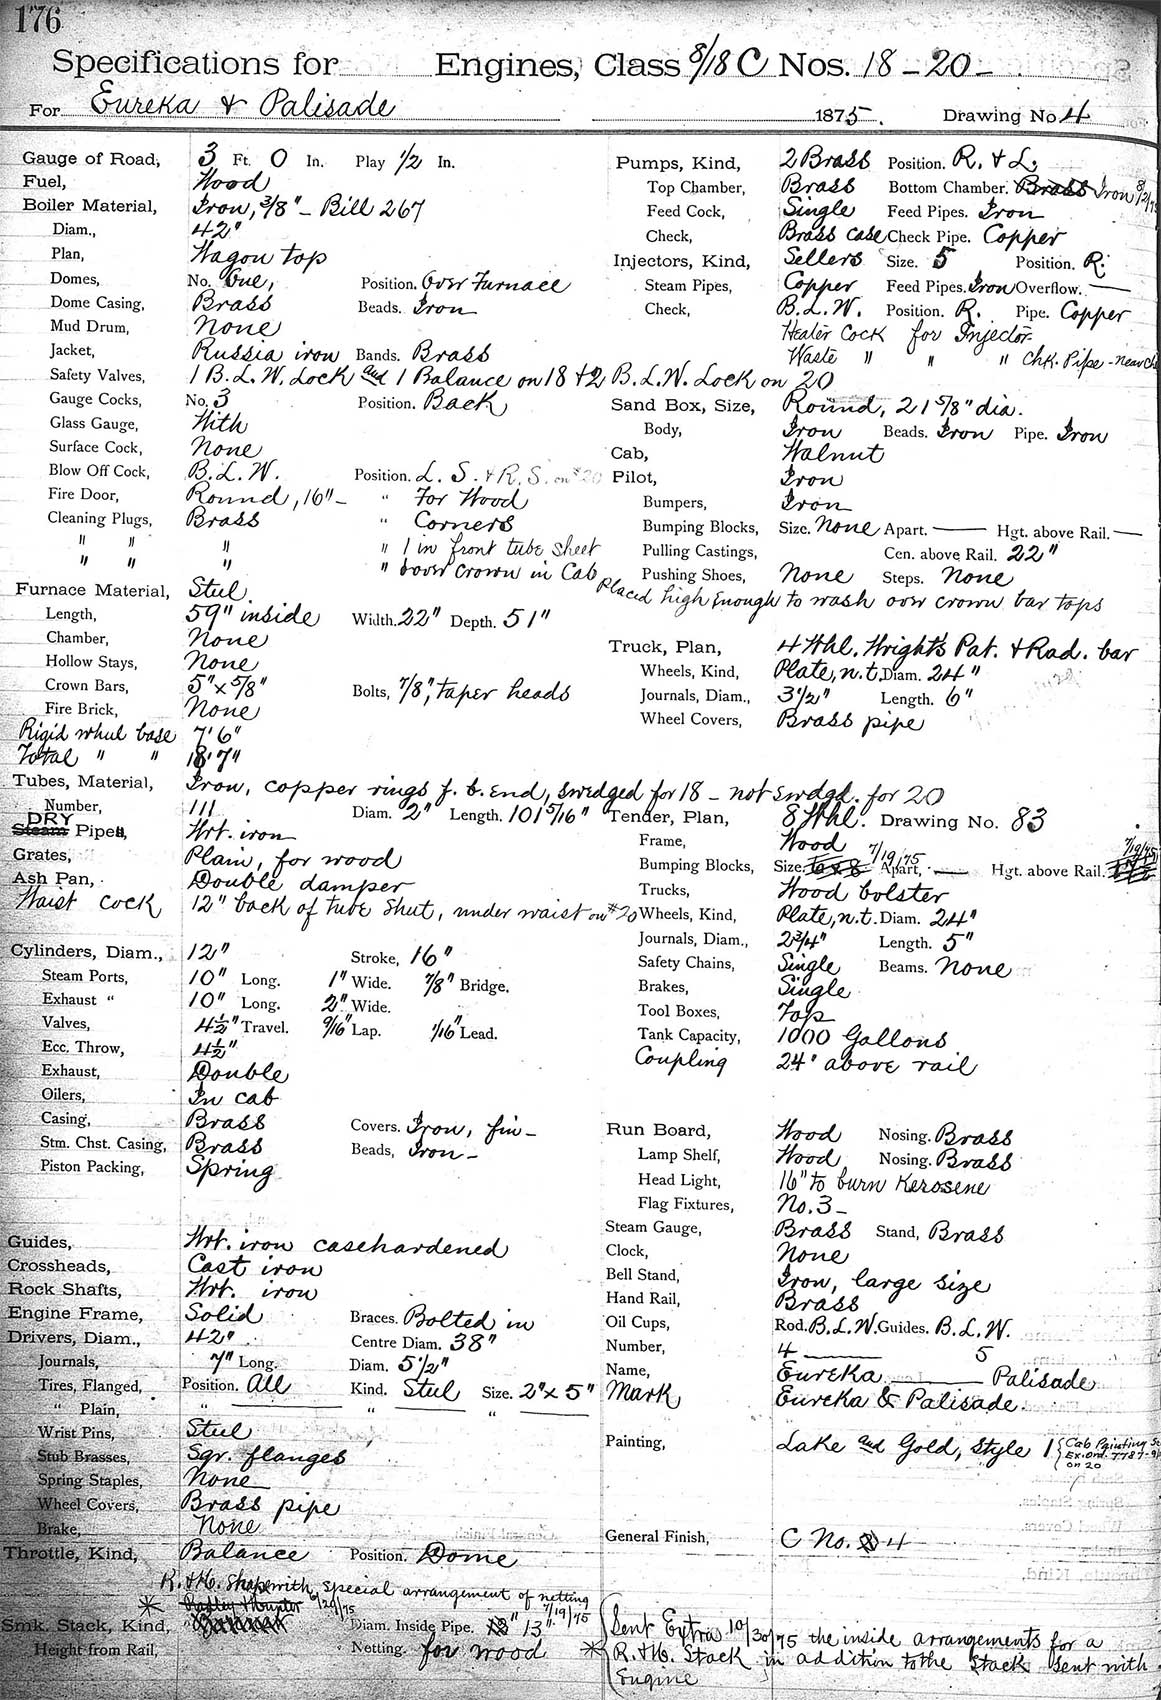 176
Specifications for Engines, Class 8/18 C Nos. 18 - 20 -
For Eureka & Palisade 1875. Drawing No 4
Gauge of Road, 3 Ft. 0 In. Play 1/2 In.
Fuel, Wood
Boiler Material, Iron, 3/8" - Bill 267
Diam., 42"
Plan, Wagon top
Domes, No. One, Position. Over Furnace
Dome Casing, Brass Beads. Iron
Mud Drum, None
Jacket, Russia iron Bands. Brass
Safety Valves, 1 B.L.W. Lock and 1 Balance on 18 + 2 B.L.W. Lock on 20
Gauge Cocks, No. 3 Position. Back
Glass Gauge, With
Surface Cock, None
Blow Off Cock, B.L.W. Position. L. S. & R. S. on #20
Fire Door, Round, 16" - " For Wood
Cleaning Plugs, Brass " Corners
" " " " 1 in front tube sheet
" " " " 6 over crown in Cab Placed high enough to wash over crown bar tops
Furnace Material, Steel
Length, 59" inside Width. 22" Depth. 51"
Chamber, None
Hollow Stays, None
Crown Bars, 5" x 5/8" Bolts, 7/8", taper heads
Fire Brick, None
Rigid wheel base 7' 6"
Total " " 18' 7"
Tubes, Material, Iron, copper rings f. b. end, swedged for 18 - not swdgd. for 20
Number, 111 Diam. 2" Length. 101 5/16"
DRY
Steam Pipes, Wrt. iron
Grates, Plain, for wood
Ash Pan, Double damper
Waist cock 12" back of tube sheet, under waist on #20
Cylinders, Diam., 12" Stroke, 16"
Steam Ports, 10" Long. 1" Wide. 7/8" Bridge.
Exhaust " 10" Long. 2" Wide.
Valves, 4 1/2" Travel. 9/16" Lap. 1/16" Lead.
Ecc. Throw, 4 1/2"
Exhaust, Double
Oilers, In cab
Casing, Brass Covers. Iron, fin -
Stm. Chst. Casing, Brass Beads, Iron -
Piston Packing, Spring
Guides, Wrt. iron casehardened
Crossheads, Cast iron
Rock Shafts, Wrt. iron
Engine Frame, Solid Braces. Bolted in
Drivers, Diam., 42" Centre Diam. 38"
Journals, 7" Long. Diam. 5 1/2"
Tires, Flanged, Position. All Kind. Steel Size. 2" x 5"
" Plain, " " "
Wrist Pins, Steel
Stub Brasses, Sqr. flanges
Spring Staples, None
Wheel Covers, Brass pipe
Brake, None
Throttle, Kind, Balance Position. Dome
R. & H. Shape with special arrangement of netting
* Radley & Hunter 6/29/75 7/19/75
Smk. Stack, Kind, Diam. Inside Pipe. 13"
Height from Rail, Netting. for wood
Pumps, Kind, 2 Brass Position. R. & L.
Top Chamber, Brass Bottom Chamber. Brass Iron
Feed Cock, Single Feed Pipes. Iron
Check, Brass case Check Pipe. Copper
Injectors, Kind, Sellers Size. 5 Position. R.
Steam Pipes, Copper Feed Pipes. Iron Overflow. —
Check, B.L.W. Position. R. Pipe. Copper
Heater Cock for Injector
Waste " " " Chk. Pipe - near
Sand Box, Size, Round, 21 5/8" dia.
Body, Iron Beads. Iron Pipe. Iron
Cab, Walnut
Pilot, Iron
Bumpers, Iron
Bumping Blocks, Size. None Apart. — Hgt. above Rail. —
Pulling Castings, Cen. above Rail. 22"
Pushing Shoes, None Steps. None
Truck, Plan, 4 Whl. Wright's Pat. & Rad. bar
Wheels, Kind, Plate, n.t. Diam. 24"
Journals, Diam., 3 1/2" Length. 6"
Wheel Covers, Brass pipe
Tender, Plan, 8 Whl. Drawing No. 83
Frame, Wood
7/19/75 7/19/75
Bumping Blocks, Size. 6 x 8 Apart, — Hgt. above Rail.
Trucks, Wood bolster
Wheels, Kind, Plate, n.t. Diam. 24"
Journals, Diam., 2 3/4" Length. 5"
Safety Chains, Single Beams. None
Brakes, Single
Tool Boxes, Top
Tank Capacity, 1000 Gallons
Coupling 24" above rail
Run Board, Wood Nosing. Brass
Lamp Shelf, Wood Nosing. Brass
Head Light, 16" to burn Kerosene
Flag Fixtures, No. 3 -
Steam Gauge, Brass Stand, Brass
Clock, None
Bell Stand, Iron, large size
Hand Rail, Brass
Oil Cups, Rod. B.L.W. Guides. B.L.W.
Number, 4 — 5
Name, Eureka — Palisade
Mark Eureka & Palisade.
Painting, Lake and Gold, Style 1 { Cab Painting
Ex. Ord. 7787-
on 20
General Finish, C No. 4
Sent Extra 10/30/75 the inside arrangements for a
* R. & H. Stack in addition to the Stack sent with
Engine